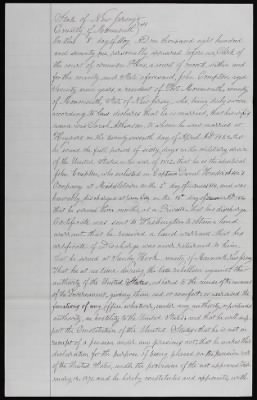 State of New Jersey
County of Monmouth } SS
On this 8 day of May A.D. one thousand eight hundred
and seventy five personally appeared before me Clerk
of the court of common Pleas, a court of record, within and
for the county, and State aforesaid, John Compton, aged
Seventy nine years, a resident of Monmouth, county
of Monmouth, State of New Jersey, who being duly sworn
according to law declares that he is married, that his wife's
name was Sarah, to whom he was married at
on the twenty seventh day of April A.D. 1822, that
he served the full period of sixty days in the military service
of the United States in the war of 1812, that he is the identical
John Compton, who enlisted in Captain
Company at Middletown on the 2d day of 1814, and was
honorably discharged at on the day of
that he served three months, as a Private, that his discharge
Certificate was sent to Washington to obtain a land
warrant, that he received a land warrant that his
certificate of Discharge was never returned to him,
that he served at Sandy Hook, county of Monmouth, New Jersey,
That he at no time during the late rebellion against the
authority of the United States, adhered to the cause of the enemies
of the Government, giving them aid or comfort, or exercised the
functions of any office whatever, under any authority or pretended
authority, in hostility to the United States, and that he will sup-
port the Constitution of the United States, that he is not in
receipt of a pension under any previous act, that he makes this
declaration for the purpose of being placed on the pension roll
of the United States, under the provisions of the act approved Feb-
ruary 14, 1871, and he hereby constitutes and appoints, with